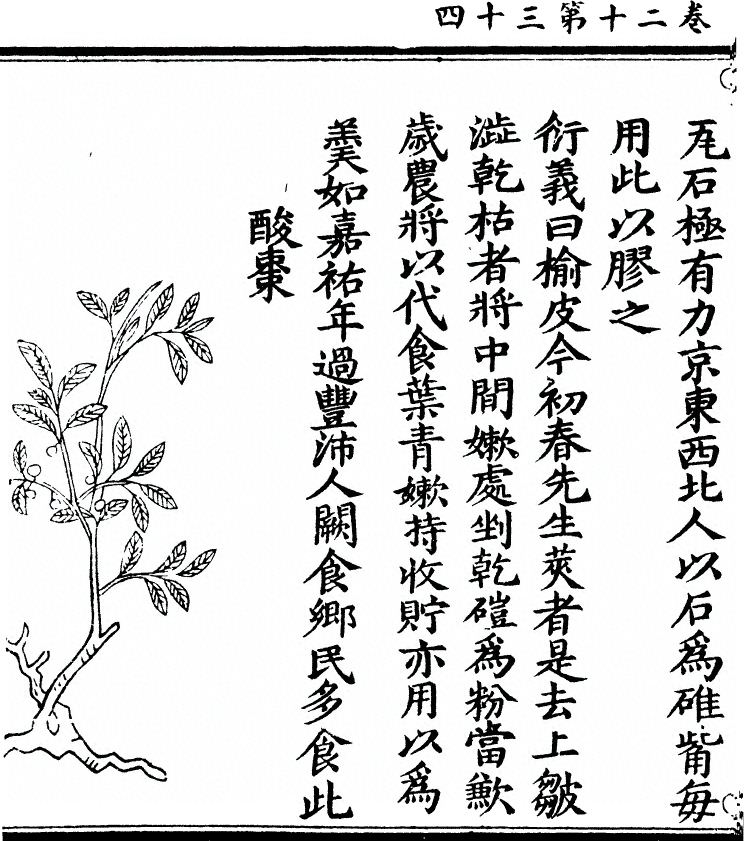 卷二十第三十四
瓦石極有力京東西北人以石爲碓觜每
用此以膠之
衍義曰榆皮今初春先生莢者是去上皺
澁乾枯者將中間嫰處剉乾磑爲粉當歉
歳農將以代食葉青嫰持收貯亦用以爲
羹如嘉祐年過豐沛人闕食鄉民多食此
酸棗